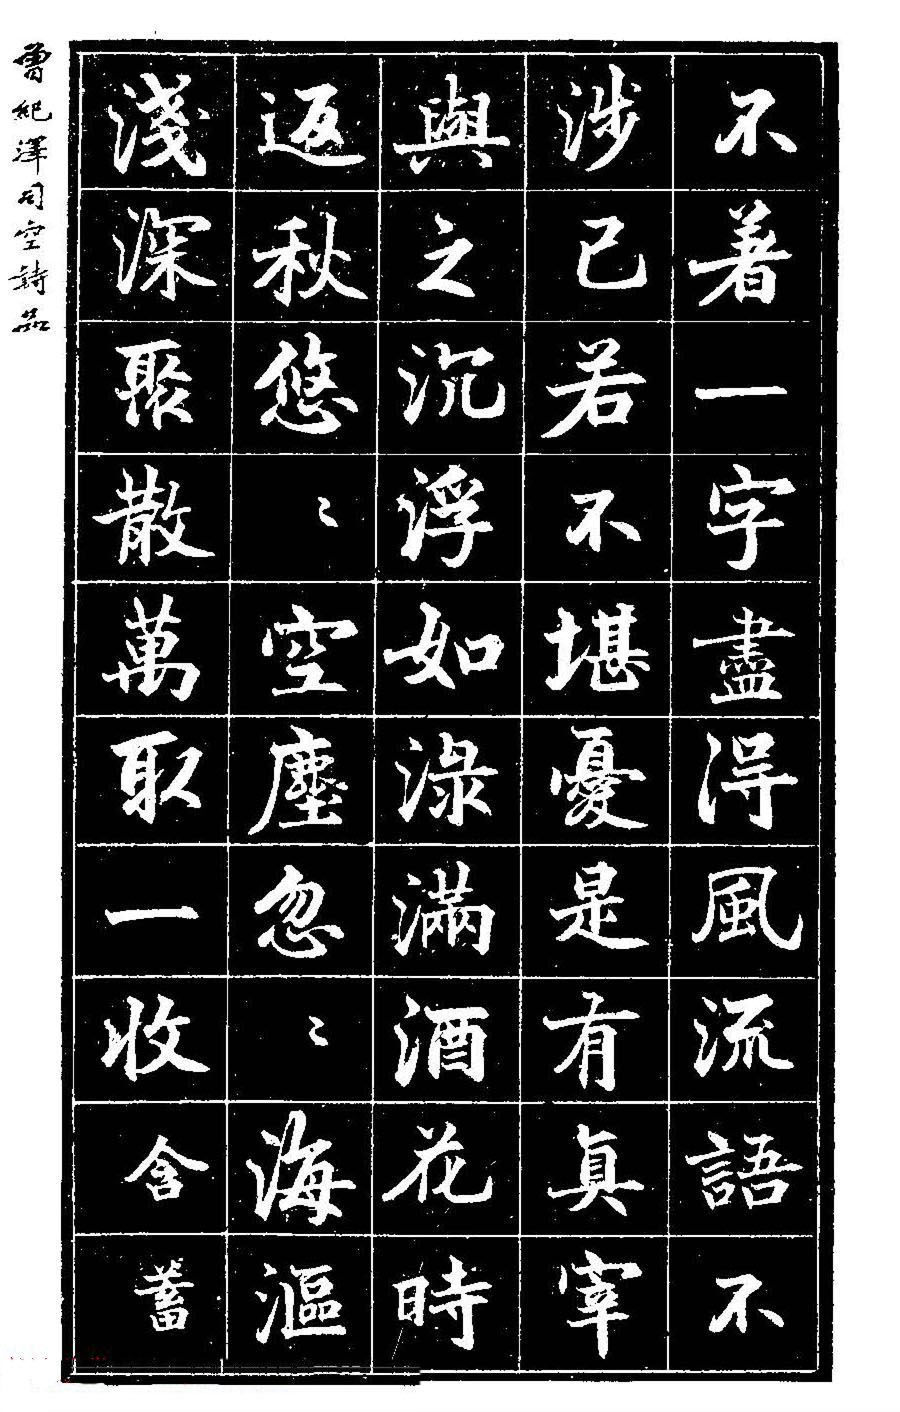 不著一字盡得風流語不
涉已若不堪憂是有真宰
與之沉浮如淥滿酒花時
返秋悠〻空塵忽〻海漚
淺深聚散萬取一收含蓄
曾紀澤司空詩品